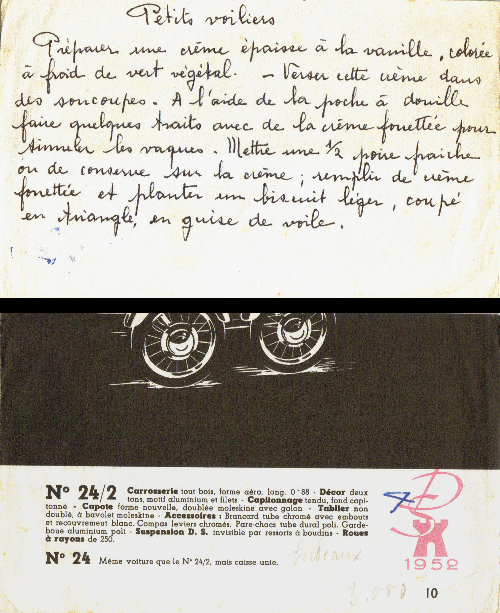 Petits voiliers
Préparer une crème épaisse à la vanille, colorée
à froid de vert végétal. - Verser cette crème dans
des soucoupes. A l'aide de la poche à douille
faire quelques traits avec de la crème fouettée pour
simuler les vagues. Mettre une ½ poire fraiche
ou de conserve sur la crème ; remplir de crème
fouettée et planter un biscuit léger, coupé
en triangle, en guise de voile.
N° 24/2 Carrosserie tout bois, forme aéro, long. 0m88 - Décor deux
tons, motif aluminium et filets - Capitonnage tendu, fond capi-
tonné - Capote forme nouvelle, doublée moleskine avec galon - Tablier non
doublé, à bavolet moleskine - Accessoires : Brancard tube chromé avec embouts
et recouvrement blanc. Compas leviers chromés. Pare-chocs tube dural poli. Garde-
boue aluminium poli - Suspension D. S. invisible par ressorts à boudins - Roues
à rayons de 250.
N° 24 Même voiture que le N° 24/2, mais caisse unie.
bordeaux
DS
1952
10